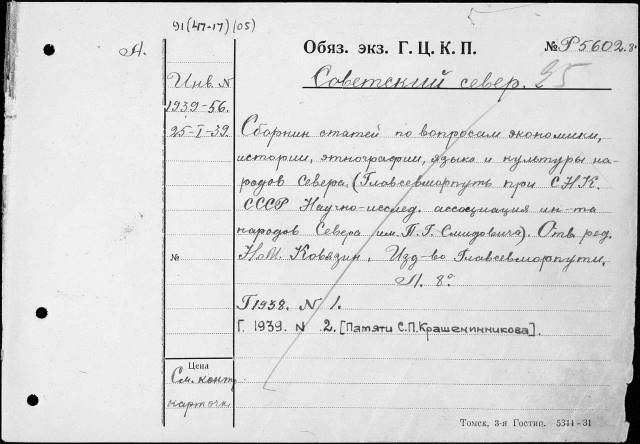 91(47-17)(05)
Л.
Обяз. экз. Г. Ц. К. П.
№ Р5602.г.
Инв. N
1939-56.
25-I-39.
Советский север. 25
Сборник статей по вопросам экономики,
истории, этнографии, языка и культуры на-
родов Севера. (Главсевморпуть при С.Н.К.
СССР Научно-исслед. ассоциация ин-та
народов Севера им. П.Г. Смидовича). Отв. ред.
№
Н.М. Ковязин. Изд-во Главсевморпути.
Л. 8°
Г 1938. N 1.
Г. 1939. N 2. [Памяти С.П. Крашенинникова].
Цена
См. конт.
карточк.
Томск, 3-я Гостип. 5344-31